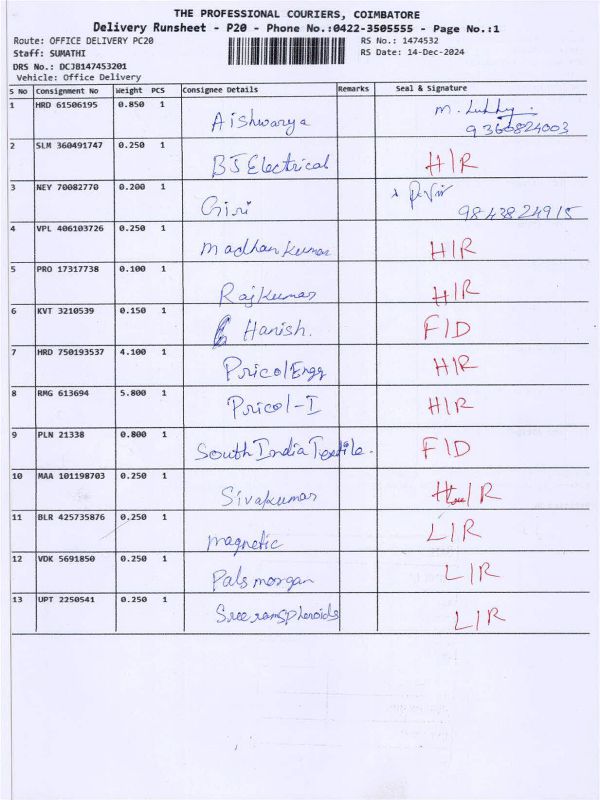 THE PROFESSIONAL COURIERS, COIMBATORE
Delivery Runsheet - P20 - Phone No.:0422-3505555 - Page No.:1
Route: OFFICE DELIVERY PC20 RS No.: 1474532
Staff: SUMATHI RS Date: 14-Dec-2024
DRS No.: DCJB147453201
Vehicle: Office Delivery
S No Consignment No Weight PCS Consignee Details Remarks Seal & Signature
1 HRD 61506195 0.850 1 Aishwarya 9360824003
2 SLM 360491747 0.250 1 BJ Electrical H/R
3 NEY 70082770 0.200 1 Giri 9843824915
4 VPL 406103726 0.250 1 Madhan Kumar H/R
5 PRO 17317738 0.100 1 Rajkumar H/R
6 KVT 3210539 0.150 1 Hanish. F/D
7 HRD 750193537 4.100 1 Pricol Engg H/R
8 RMG 613694 5.800 1 Pricol-I H/R
9 PLN 21338 0.800 1 South India Textile. F/D
10 MAA 101198703 0.250 1 Sivakumar H/R
11 BLR 425735876 0.250 1 magnetic L/R
12 VDK 5691850 0.250 1 Pals morgan L/R
13 UPT 2250541 0.250 1 Sree ram spheroids L/R